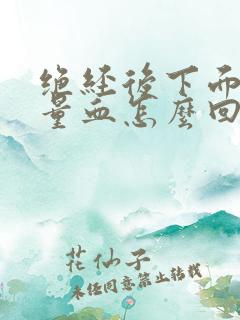 绝经后下而
量血怎麼回
花仙子
未经同意禁止转载